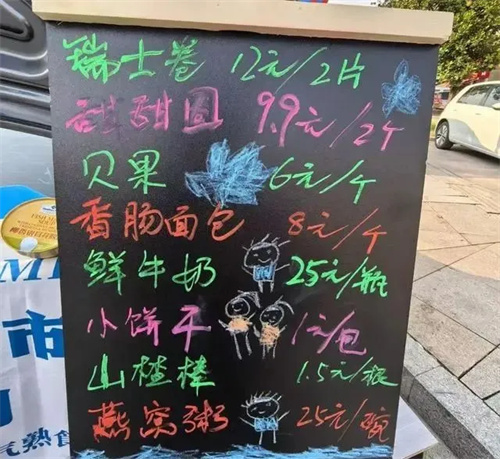 瑞士卷 12元/2片
甜甜圆 9.9元/2个
贝果 6元/个
香肠面包 8元/个
鲜牛奶 25元/瓶
小饼干 1元/包
山楂棒 1.5元/根
燕窝粥 25元/碗
市
气熟食